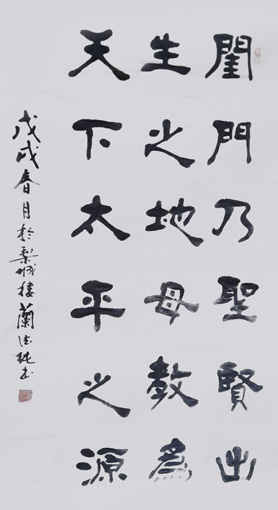 閨門乃聖賢出
生之地母教為
天下太平之源
戊戌春月於樓蘭